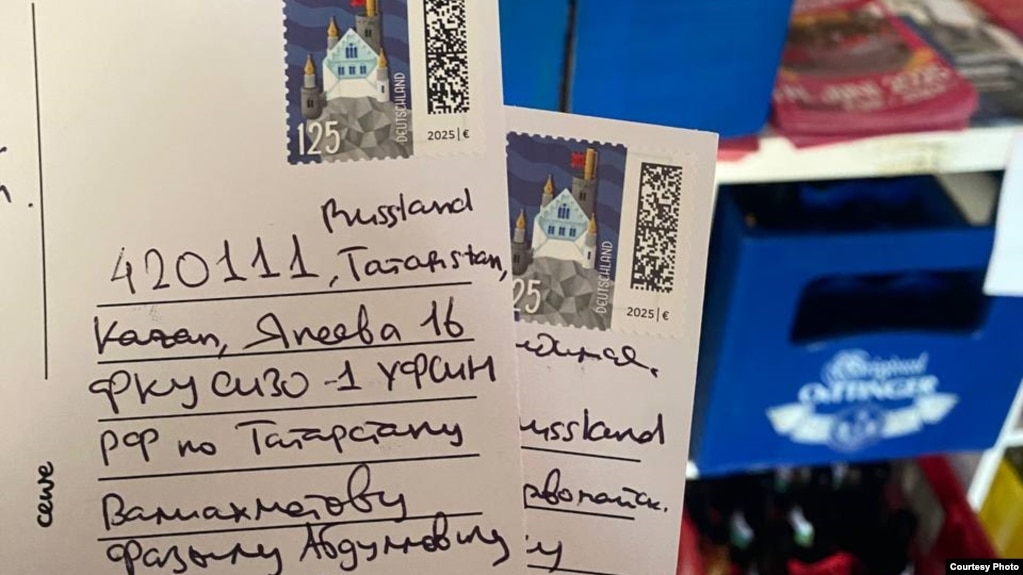 125
DEUTSCHLAND
2025 | €
Russland
420111, Татарstan,
Kazan, Япеева 16
ФКУ СИЗО-1 УФСИН
РФ по Татарстану
Валиахметову
Фазылу Абдулловичу
cewe
25
DEUTSCHLAND
2025 | €
ussland
рвомайск.
Original
OETTINGER
Courtesy Photo